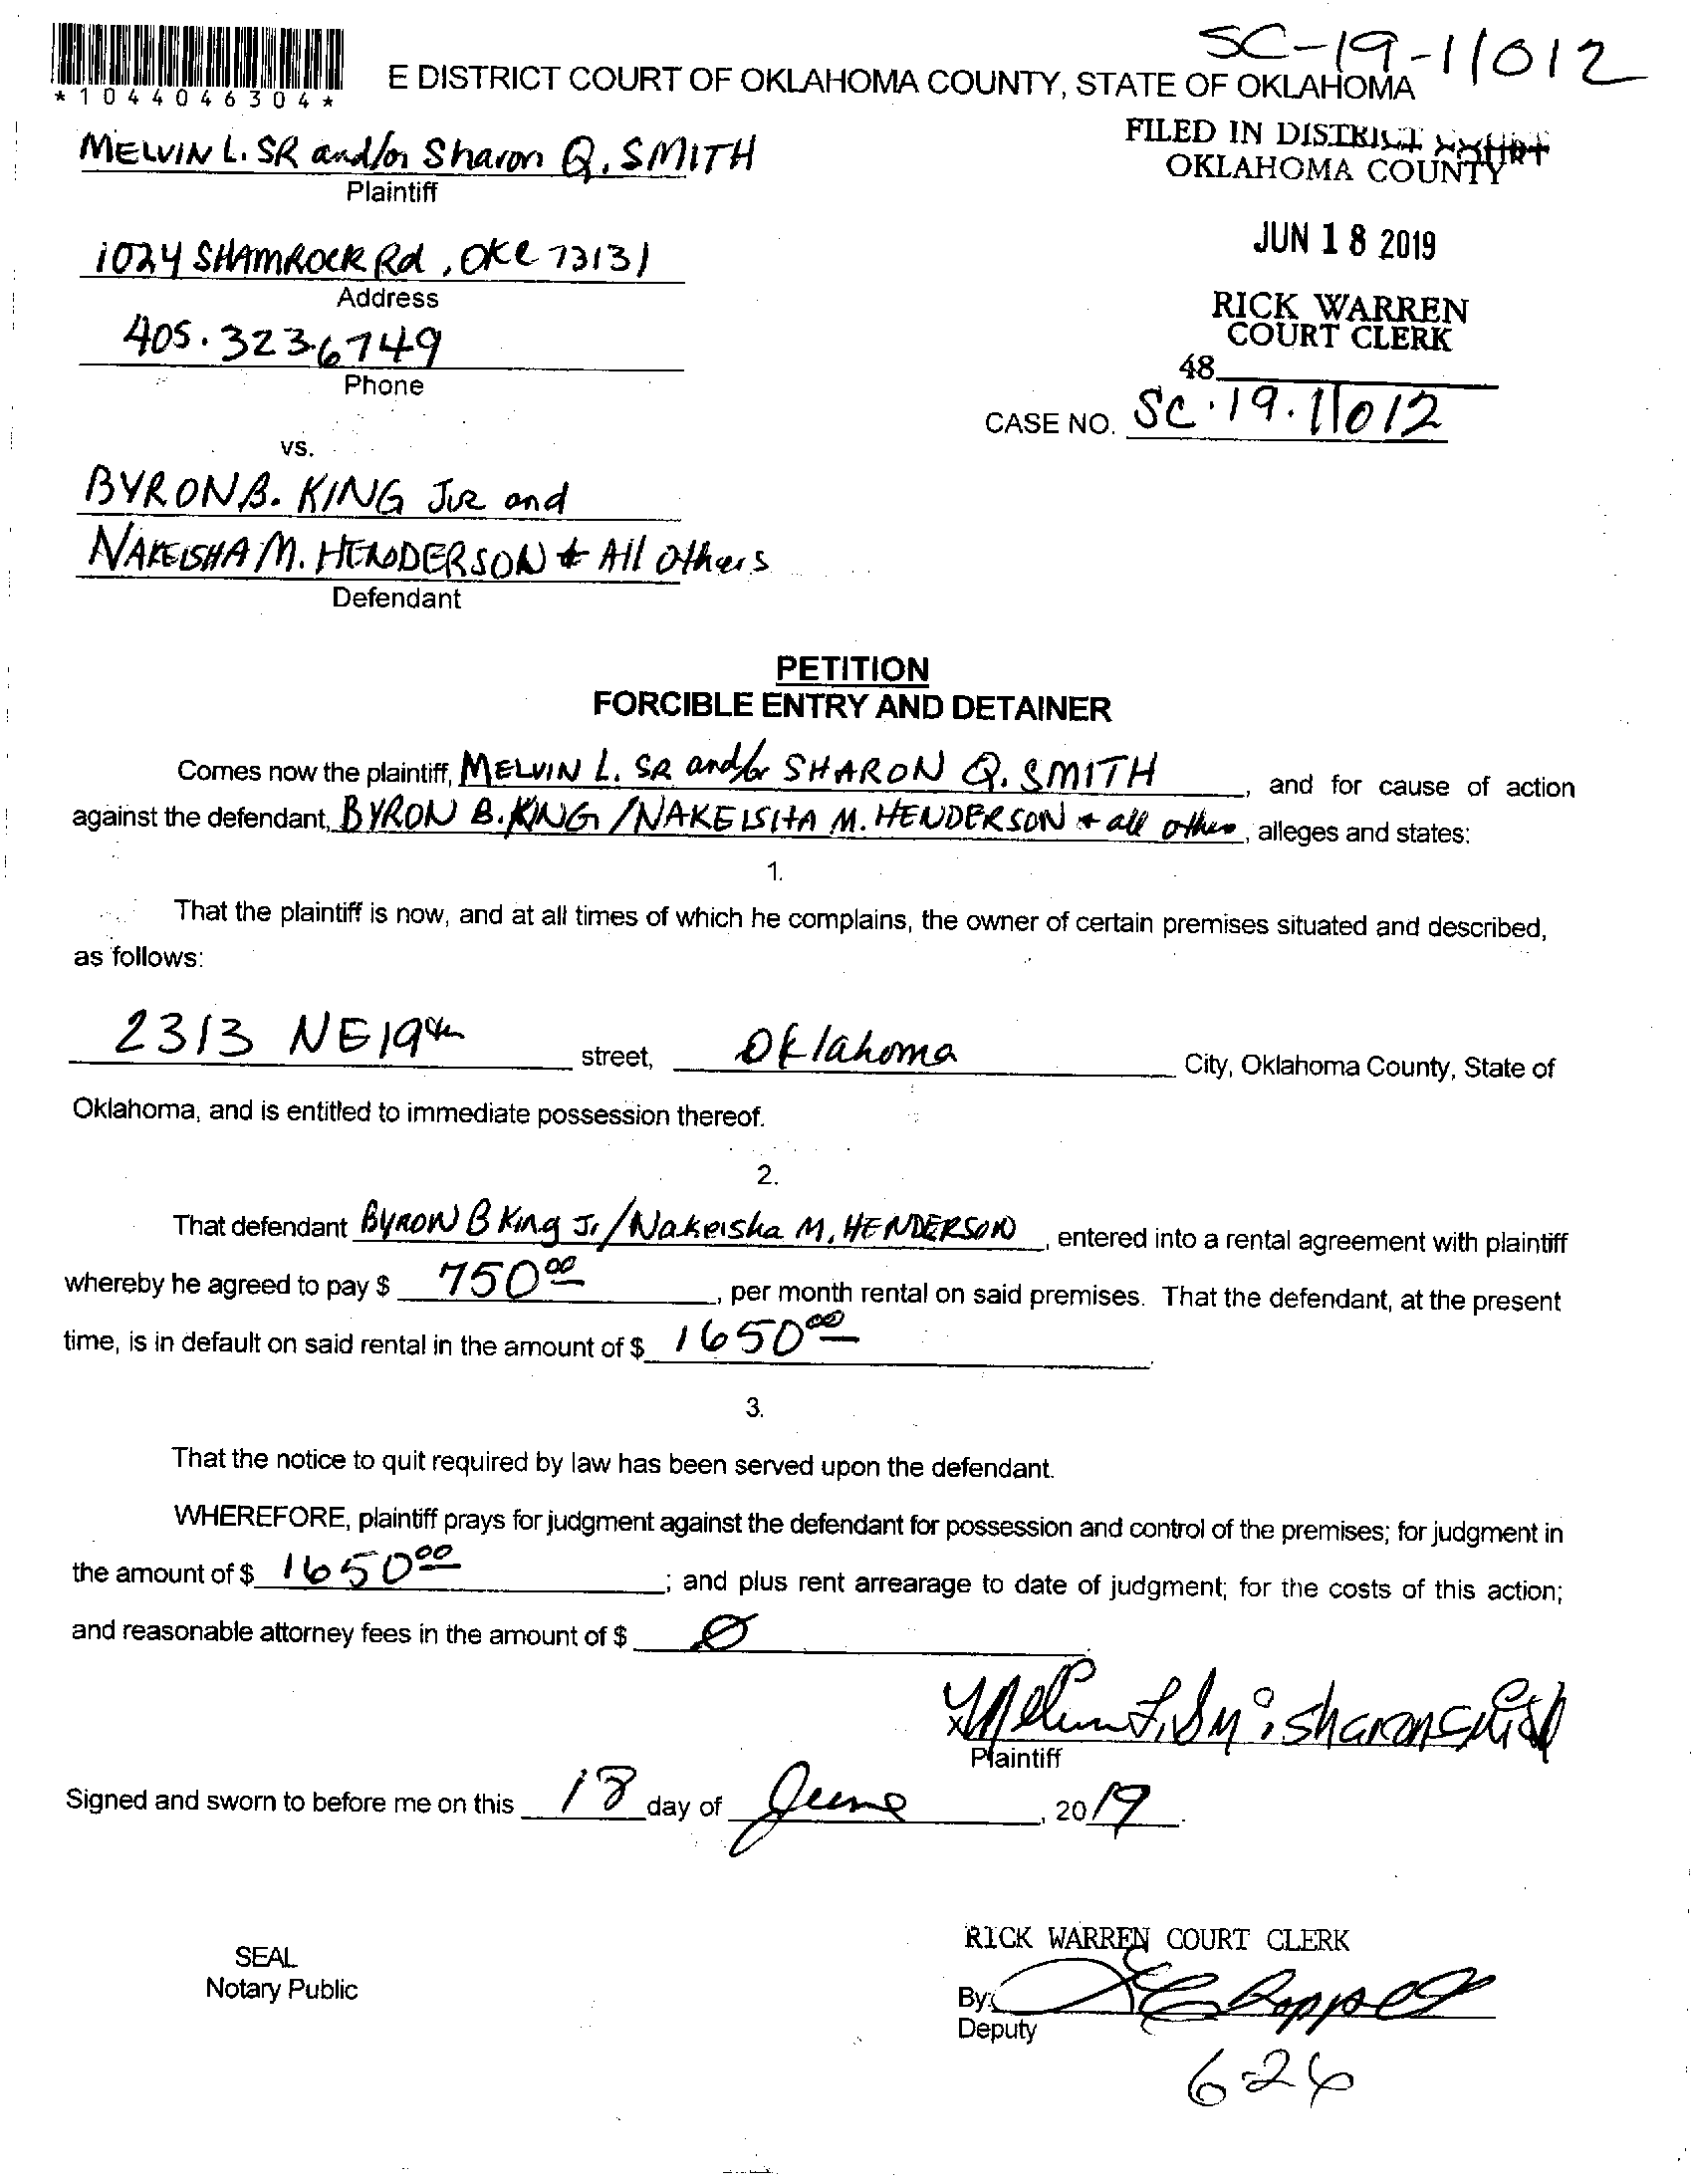 SC-19-11012
*1044046304*
E DISTRICT COURT OF OKLAHOMA COUNTY, STATE OF OKLAHOMA
FILED IN DISTRICT COURT
OKLAHOMA COUNTY
MELVIN L. SR and/or Sharon Q. SMITH
Plaintiff
JUN 18 2019
1024 SHAMROCK Rd, OKC 73131
Address
RICK WARREN
COURT CLERK
405.323.6749
Phone
48
CASE NO. SC.19.11012
vs.
BYRON B. KING JUR and
NAKEISHA M. HENDERSON & All Others
Defendant
PETITION
FORCIBLE ENTRY AND DETAINER
Comes now the plaintiff, MELVIN L. SR and/or SHARON Q. SMITH, and for cause of action
against the defendant, BYRON B. KING/NAKEISHA M. HENDERSON + all others, alleges and states:
1.
That the plaintiff is now, and at all times of which he complains, the owner of certain premises situated and described,
as follows:
2313 NE 19th street, Oklahoma City, Oklahoma County, State of
Oklahoma, and is entitled to immediate possession thereof.
2.
That defendant BYRON B King Jr/Nakeisha M. HENDERSON, entered into a rental agreement with plaintiff
whereby he agreed to pay $ 750.00, per month rental on said premises. That the defendant, at the present
time, is in default on said rental in the amount of $ 1650.00.
3.
That the notice to quit required by law has been served upon the defendant.
WHEREFORE, plaintiff prays for judgment against the defendant for possession and control of the premises; for judgment in
the amount of $ 1650.00; and plus rent arrearage to date of judgment; for the costs of this action;
and reasonable attorney fees in the amount of $ Ø
x Melvin L. Sm Sharon Smith
Plaintiff
Signed and sworn to before me on this 18 day of June, 2019.
RICK WARREN COURT CLERK
SEAL
Notary Public
By:
Deputy